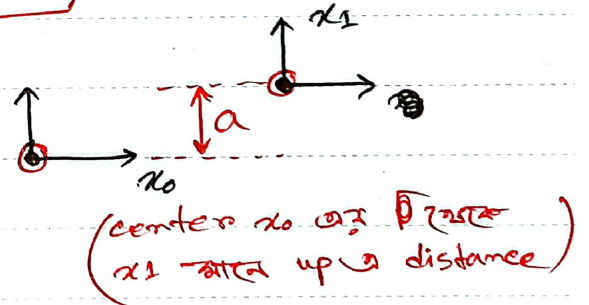 x1
a
x0
(center x0 এর থেকে
x1 মানে up এ distance)